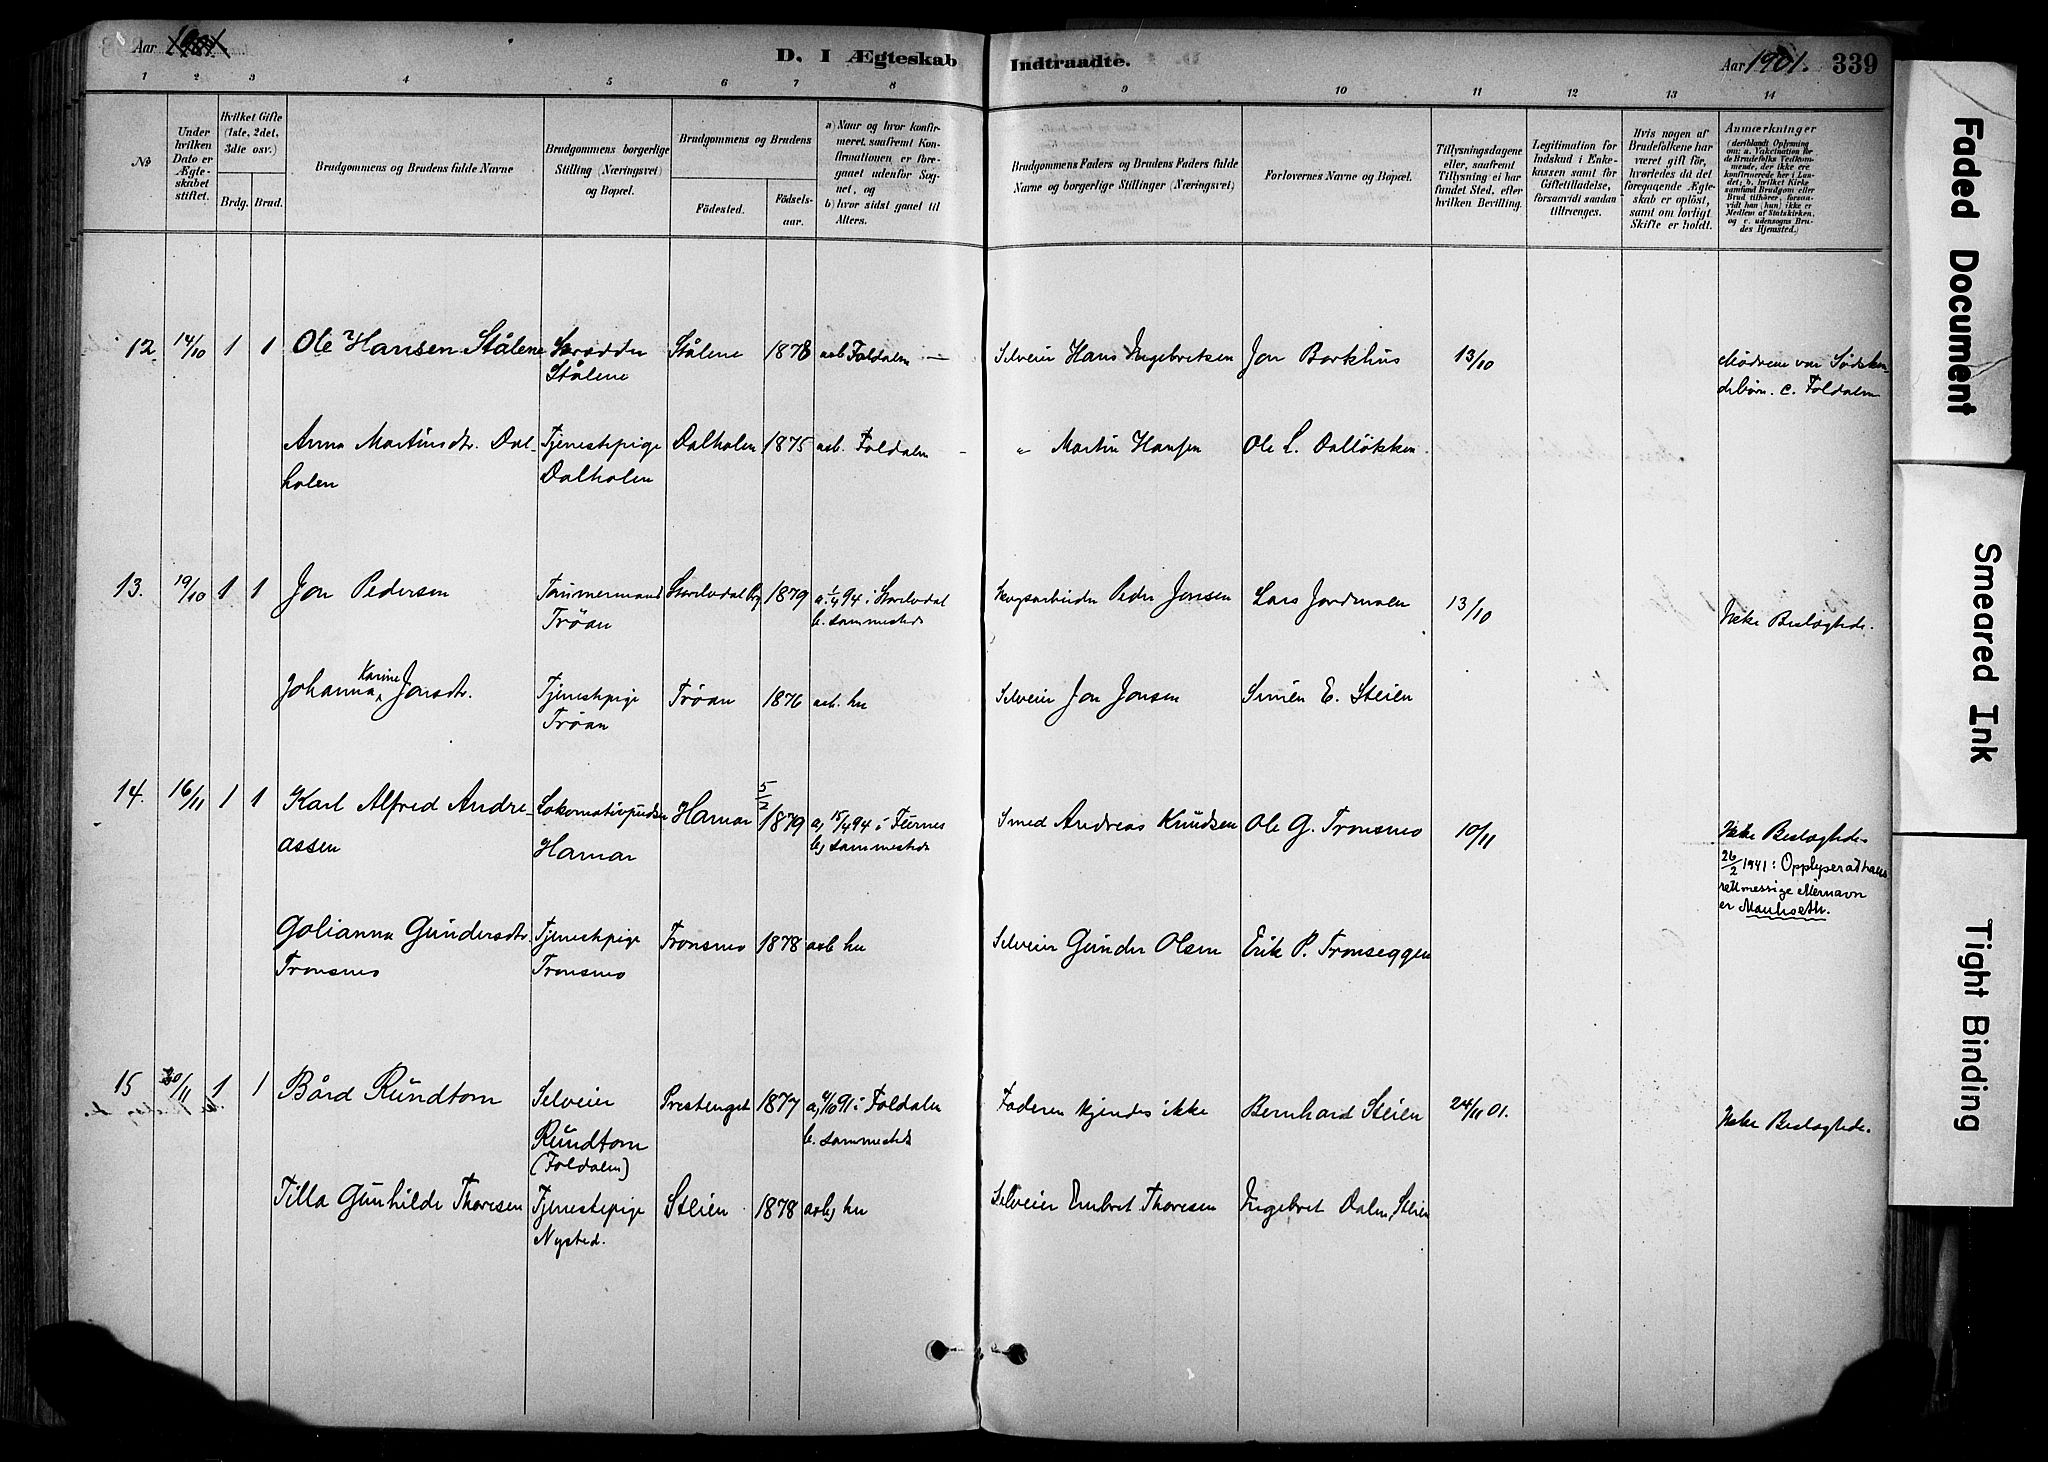 Aar 1901.
D. I Ægteskab Indtraadte.
Aar 1901. 339
1 2 3 4 5 6 7 8 9 10 11 12 13 14
No
Under hvilken Dato er Ægteskabet stiftet.
Hvilket Gifte (1ste, 2det, 3dte osv.)
Brdg. Brud.
Brudgommens og Brudens fulde Navne
Brudgommens borgerlige Stilling (Næringsvei) og Bopæl.
Brudgommens og Brudens
Födested. Födselsaar.
a) Naar og hvor konfirmeret, saafremt Konfirmationen er foregaaet udenfor Sognet, og
b) hvor sidst gaaet til Alters.
Brudgommens Faders og Brudens Faders fulde Navne og borgerlige Stillinger (Næringsvei)
Forlovernes Navne og Bopæl.
Tillysningsdagene eller, saafremt Tillysning ei har fundet Sted, efter hvilken Bevilling.
Legitimation for Indskud i Enkekassen samt for Giftetilladelse, forsaavidt saadan tiltrænges.
Hvis nogen af Brudefolkene har været gift för, hvorledes da det foregaaende Ægteskab er oplöst, samt om lovligt Skifte er holdt.
Anmærkninger (deriblandt Oplysning om: a. Vakcination for de Brudefolks Vedkommende, der ikke ere konfirmerede her i Landet; b. hvilket Kirkesamfund Brudgom eller Brud tilhörer, forsaavidt han (hun) ikke er Medlem af Statskirken, og c. udensogns Brudes Hjemsted.)
12. 14/10 1 1 Ole Hansen Stålene Skrædder Stålene 1878 aob Foldalen — Selveier Hans Ingebretsen Jon Borkhus 13/10
Stålene
Mødrene var Sødskendebørn. c. Foldalen
Anna Martinsdtr. Dalholen Tjenestepige Dalholen 1875 aob. Foldalen - " Martin Hansen Ole L. Dalløkken
Dalholen
13. 19/10 1 1 Jon Pedersen Tømmermand Storelvdal 1879 a. 1/4 94 i Storelvdal Skogsarbeider Peder Jonsen Lars Jordmoen 13/10
Trøan b. sammesteds
Ikke Beslægtede.
Johanna Karine Jonsdtr. Tjenestepige Trøan 1876 aob. her Selveier Jon Jonsen Simen E. Steien
Trøan
14. 16/11 1 1 Karl Alfred Andreassen Lokomotivpudser Hamar 5/2 1879 a, 15/4 94 i Furnes Smed Andreas Knudsen Ole G. Tronsmo 10/11
Hamar b, sammesteds
Ikke Beslægtede
26/2 1941: Opplyser at hans
rettmessige etternavn
er Mauhseth.
Golianna Gundersdtr. Tjenestepige Tronsmo 1878 aob her Selveier Gunder Olsen Erik P. Tronseggen
Tronsmo Tronsmo
15 30/11 1 1 Bård Rundtom Selveier Prestenget 1877 a, 4/10 91 i Foldalen Faderen kjendes ikke Bernhard Steien 24/11 01.
Rundtom b. sammesteds
(Foldalen)
Ikke Beslægtede.
Tilla Gunhilde Thoresen Tjenestepige Steien 1878 aob, her Selveier Embret Thoresen Ingebret Dalen, Steien
Nysted.
Faded Document
Smeared Ink
Tight Binding